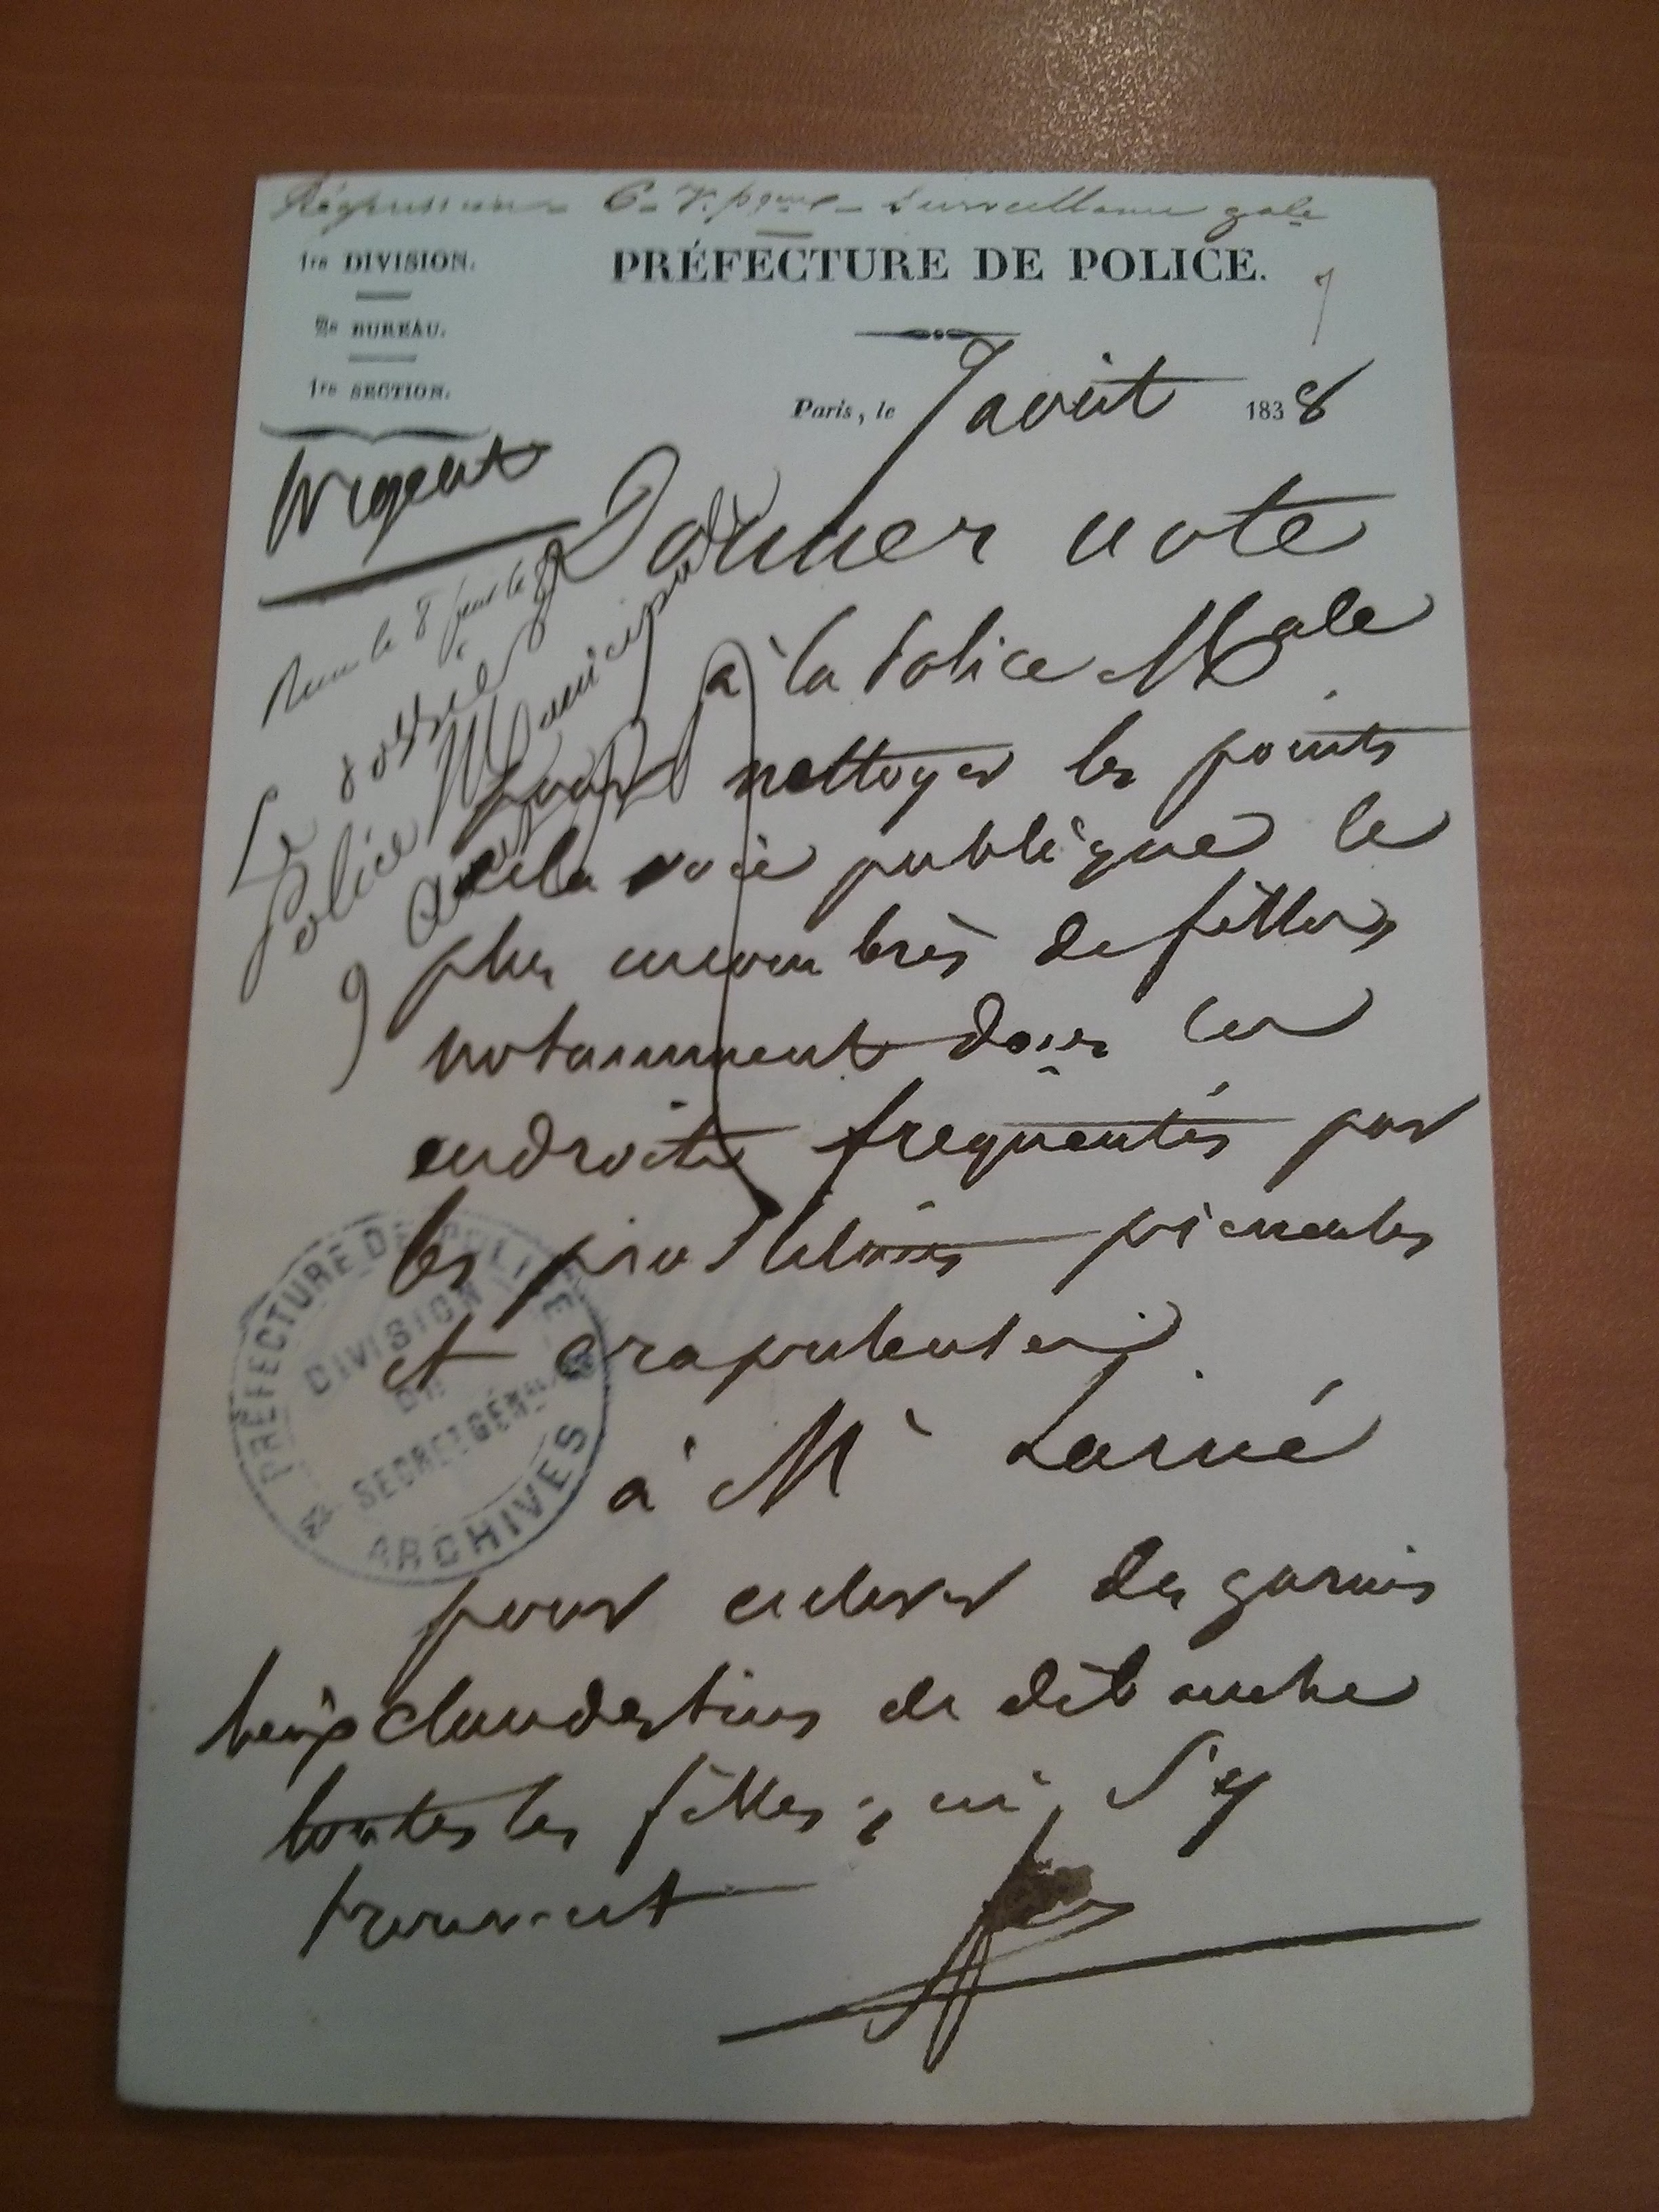 Répression - 6 - v. pque - Surveillance gale
1re DIVISION.
2e BUREAU.
1re SECTION.
PRÉFECTURE DE POLICE.
7
Paris, le 7 août 1838
Urgent
le 8
Le dossier
Police Municipale
Donner note
à la Police Male
pour nettoyer les points
de la voie publique le
plus encombrés de filles
notamment dans les
endroits fréquentés par
les prostituées
et crapuleuses
à Mr Lainé
pour enlever des garnis
lieux clandestins de débauche
toutes les filles qui s'y
trouvent
PRÉFECTURE DE POLICE
DIVISION
DU
SECRET GÉNÉRAL
ARCHIVES